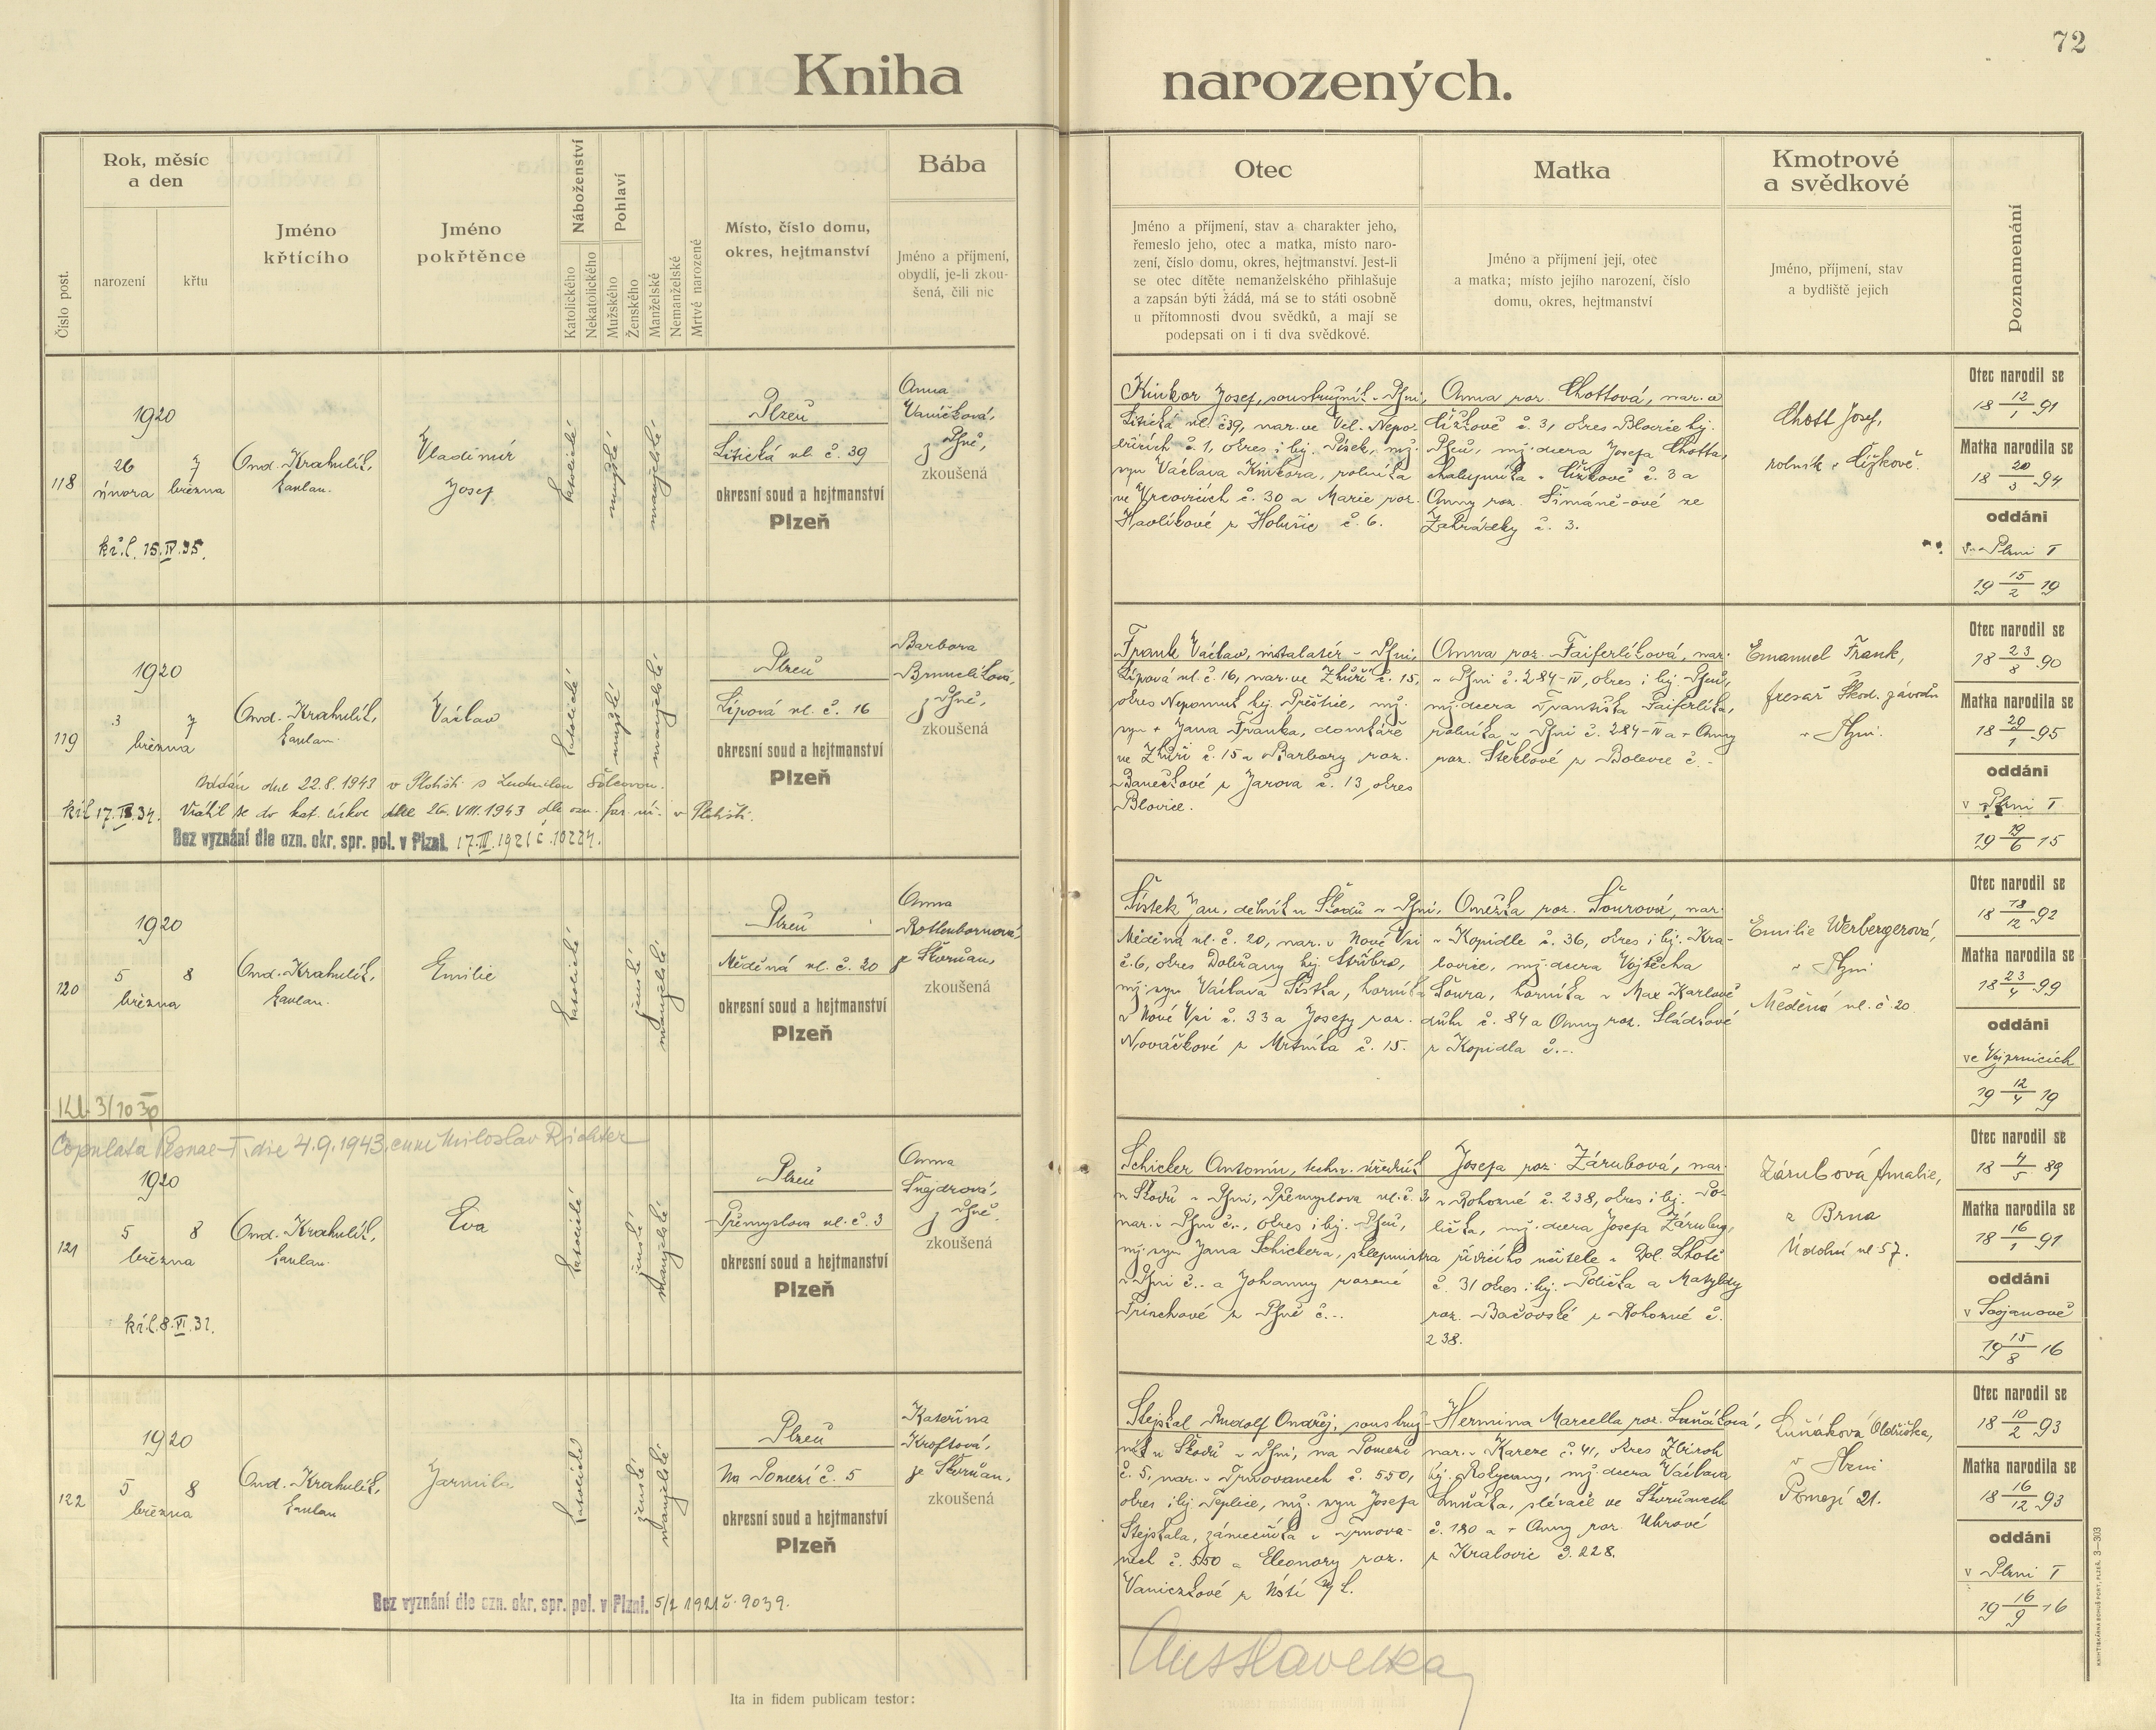 72
Kniha narozených.
Číslo post.
Rok, měsíc
a den
narození
křtu
Jméno
křtícího
Jméno
pokřtěnce
Náboženství
Katolického
Nekatolického
Pohlaví
Mužského
Ženského
Manželské
Nemanželské
Mrtvě narozené
Místo, číslo domu,
okres, hejtmanství
Bába
Jméno a příjmení,
obydlí, je-li zkou-
šená, čili nic
Otec
Jméno a příjmení, stav a charakter jeho,
řemeslo jeho, otec a matka, místo naro-
zení, číslo domu, okres, hejtmanství. Jest-li
se otec dítěte nemanželského přihlašuje
a zapsán býti žádá, má se to státi osobně
u přítomnosti dvou svědků, a mají se
podepsati on i ti dva svědkové.
Matka
Jméno a příjmení její, otec
a matka; místo jejího narození, číslo
domu, okres, hejtmanství
Kmotrové
a svědkové
Jméno, příjmení, stav
a bydliště jejich
Poznamenání
118
1920
26 7
února března
kř. l. 15.IV.35.
Ond. Krahulík,
kaplan.
Vladimír
Josef
katolické
mužské
manželské
Plzeň
Litická ul. č. 39
okresní soud a hejtmanství
Plzeň
Anna
Vaníčková,
z Plzně,
zkoušená
Kinkor Josef, soustružník v Plzni,
Litická ul. č 39, nar. ve Vel. Nepo-
dřicích č. 1, okres i hej. Písek, mž.
syn Václava Kinkora, rolníka
ve Vrcovicích č. 30 a Marie roz.
Havlíkové z Holušic č. 6.
Anna roz. Chottová, nar. v
Čížkově č. 3, okres Blovice hej.
Plzeň, mž. dcera Josefa Chotta,
chalupníka v Čížkově č. 3 a
Anny roz. Šimáně-ové ze
Zahrádky č. 3.
Chott Josef,
rolník v Čížkově.
Otec narodil se
18 12/1 91
Matka narodila se
18 20/5 94
oddáni
v Plzni I
19 15/2 19
119
1920
3 7
března
Ond. Krahulík,
kaplan.
Václav
katolické
mužské
manželské
Plzeň
Lipová ul. č. 16
okresní soud a hejtmanství
Plzeň
Barbora
Brnuclíková,
z Plzně,
zkoušená
Oddán dne 22.8.1943 v Plohšti s Ludmilou Šolcovou.
kř.l 17.II.34. Vrátil se do kat. církve dne 26.VIII.1943 dle ozn. far. úř. v Plohšti.
Bez vyznání dle ozn. okr. spr. pol. v Plzni. 17.III.1921 č. 10224.
Frank Václav, instalatér v Plzni,
Lipová ul. č. 16, nar. ve Zhůří č. 15,
okres Nepomuk hej. Přeštice, mž.
syn + Jana Franka, domkáře
ve Zhůří č. 15 a Barbory roz.
Banečkové z Jarova č. 13, okres
Blovice.
Anna roz. Faiferlíková, nar.
v Plzni č. 284-IV, okres i hej. Plzeň,
mž. dcera Františka Faiferlíka,
rolníka v Plzni č. 284-IV a + Anny
roz. Šteklové z Bolevce č. -
Emanuel Frank,
fresař Škod. závodů
v Plzni.
Otec narodil se
18 23/8 90
Matka narodila se
18 20/1 95
oddáni
v Plzni I
19 19/6 15
120
1920
5 8
března
Kl. 3/10 30
Ond. Krahulík,
kaplan.
Emilie
katolické
ženské
manželské
Plzeň
Měděná ul. č. 20
okresní soud a hejtmanství
Plzeň
Anna
Rottenbornová,
ze Skvrňan,
zkoušená
Šístek Jan, dělník u Škodů v Plzni,
Měděná ul. č. 20, nar. v Nové Vsi
č. 6, okres Dobřany hej. Stříbro,
mž. syn Václava Šístka, horníka
v Nové Vsi č. 33 a Josefy roz.
Nováčkové z Mrtníka č. 15.
Anežka roz. Šourová, nar.
v Kopidle č. 36, okres i hej. Kra-
lovice, mž. dcera Vojtěcha
Šoura, horníka v Max Karlově
dole č. 84 a Anny roz. Sládkové
z Kopidla č. -.
Emilie Werbergerová,
v Plzni
Měděná ul. č 20
Otec narodil se
18 18/12 92
Matka narodila se
18 23/4 99
oddáni
ve Vejprnicích
19 12/4 19
121
Copulata Plsnae-I. die 4.9.1943. cum Miloslav Richter
1920
5 8
března
kř.l. 8.VI.31.
Ond. Krahulík,
kaplan.
Eva
katolické
ženské
manželské
Plzeň
Přemyslova ul. č. 3
okresní soud a hejtmanství
Plzeň
Anna
Šnajdrová,
z Plzně.
zkoušená
Schicker Antonín, techn. úředník
u Škodů v Plzni, Přemyslova ul. č. 3,
nar. v Plzni č. -, okres i hej. Plzeň,
mž. syn Jana Schickera, sklepmistra
v Plzni č. - a Johanny rozené
Frinchové z Plzně č. -.
Josefa roz. Zárubová, nar.
v Rohozné č. 238, okres i hej. Po-
lička, mž. dcera Josefa Záruby,
řídícího učitele v Dol. Lhotě
č. 31 okres i hej. Polička a Matyldy
roz. Bačovské z Rohozné č.
238.
Zárubová Amalie,
z Brna
Údolní ul 57.
Otec narodil se
18 4/5 89
Matka narodila se
18 16/1 91
oddáni
v Trojanově
19 15/8 16
122
1920
5 8
března
Ond. Krahulík,
kaplan
Jarmila.
katolické
ženské
manželské
Plzeň
Na Pomezí č. 5
okresní soud a hejtmanství
Plzeň
Kateřina
Kroftová,
ze Skvrňan,
zkoušená
Bez vyznání dle ozn. okr. spr. pol. v Plzni. 5/2 1921 č. 9039.
Stejskal Rudolf Ondřej, soustruž-
ník u Škodů v Plzni, na Pomezí
č. 5, nar. v Trnovanech č. 550,
okres i hej. Teplice, mž. syn Josefa
Stejskala, zámečníka v Trnova-
nech č. 550 a Eleonory roz.
Vaniczkové z Ústí n/L.
Hermina Marcella roz. Luňáková,
nar. v Kareze č. 41, okres Zbiroh
hej. Rokycany, mž. dcera Václava
Luňáka, slévače ve Skvrňanech
č. 180 a + Anny roz. Uhrové
z Kralovic č. 228.
Luňáková Oldřiška,
v Plzni
Pomezí 21.
Otec narodil se
18 10/2 93
Matka narodila se
18 16/12 93
oddáni
v Plzni I
19 16/9 16
Ita in fidem publicam testor:
KNIHTISKÁRNA BOHUŠ PORT, PLZEŇ. 3—303